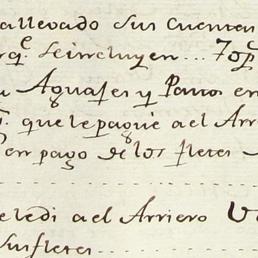 allevado sus cuentas
rq.e se incluyen ... 70p.
Aguajes y Panos en
que le pagué a el Arri
en pago de los fletes
le di a el Arriero
sus fletes